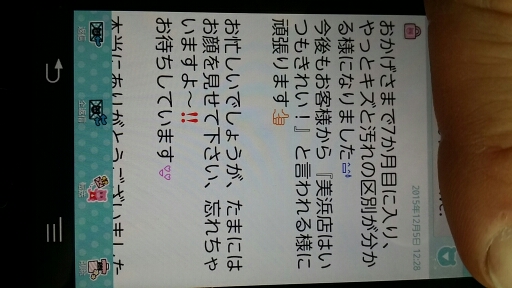 2015年12月5日 12:28
おかげさまで7か月目に入り、
やっとキズと汚れの区別が分か
る様になりました
今後もお客様から『美浜店はい
つもきれい！』と言われる様に
頑張ります
お忙しいでしょうが、たまには
お顔を見せて下さい、忘れちゃ
いますよ〜‼
お待ちしています
本当にありがとうございました